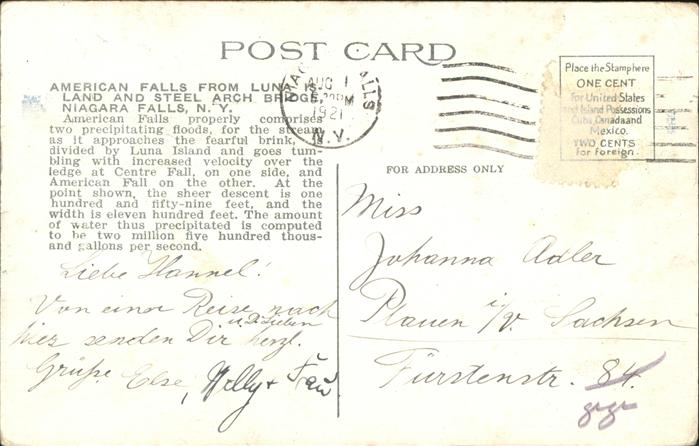 POST CARD
AMERICAN FALLS FROM LUNA IS-
LAND AND STEEL ARCH BRIDGE,
NIAGARA FALLS, N. Y.
American Falls properly comprises
two precipitating floods, for the stream
as it approaches the fearful brink, is
divided by Luna Island and goes tum-
bling with increased velocity over the
ledge at Centre Fall, on one side, and
American Fall on the other. At the
point shown, the sheer descent is one
hundred and fifty-nine feet, and
the width is eleven hundred feet. The amount
of water thus precipitated is computed
to be two million five hundred thous-
and gallons per second.
AUG 1
PM
1921
N.Y.
Place the Stamp here
ONE CENT
for United States
and Island Possessions
Cuba, Canada and
Mexico.
TWO CENTS
for Foreign.
FOR ADDRESS ONLY
Liebe Hannel!
Von einer Reise nach
u. D. Lieben
hier senden Dir herzl.
Grüße Else, Nelly +
Miss
Johanna Adler
Plauen i/V. Sachsen
Fürstenstr. 84.